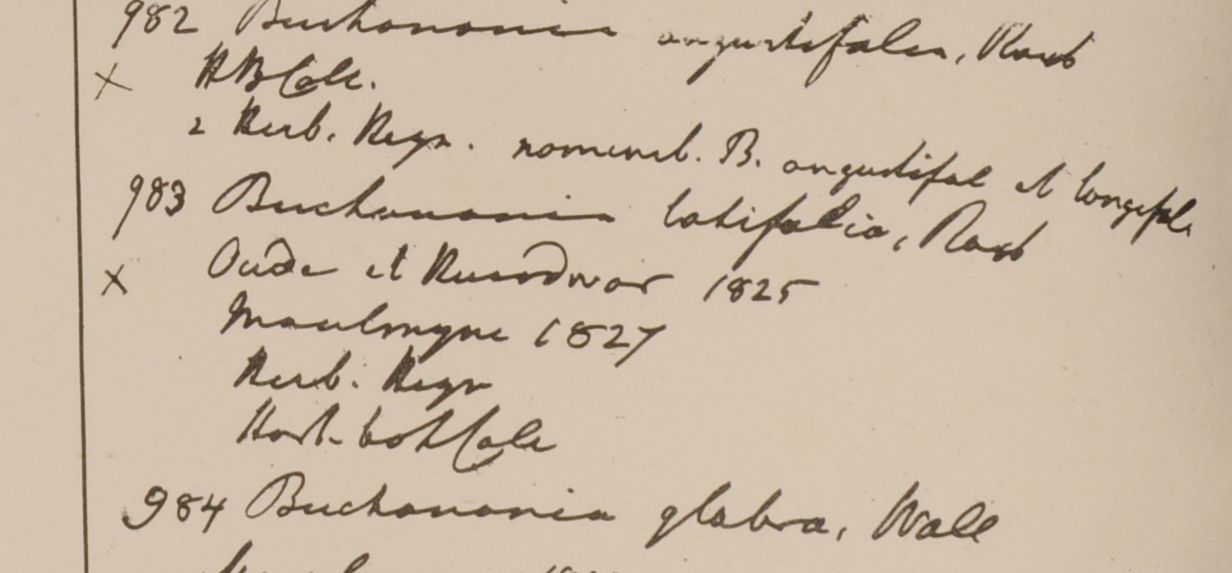 982 Buchanania angustifolia, Roxb
X HBCalc.
2 Herb. Heyn. nominib. B. angustifol et longifol.
983 Buchanania latifolia, Roxb
X Oude et Hurdwar 1825
Moulmyne 1827
Herb. Heyn
Hort. bot Calc
984 Buchanania glabra, Wall